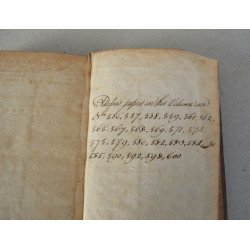 papers in this Volume are
Nos 556, 557, 558, 559, 561, 562,
565, 567, 568, 569, 571, 573,
575, 579, 580, 582, 583, 584,
585, 590, 592, 598, 600